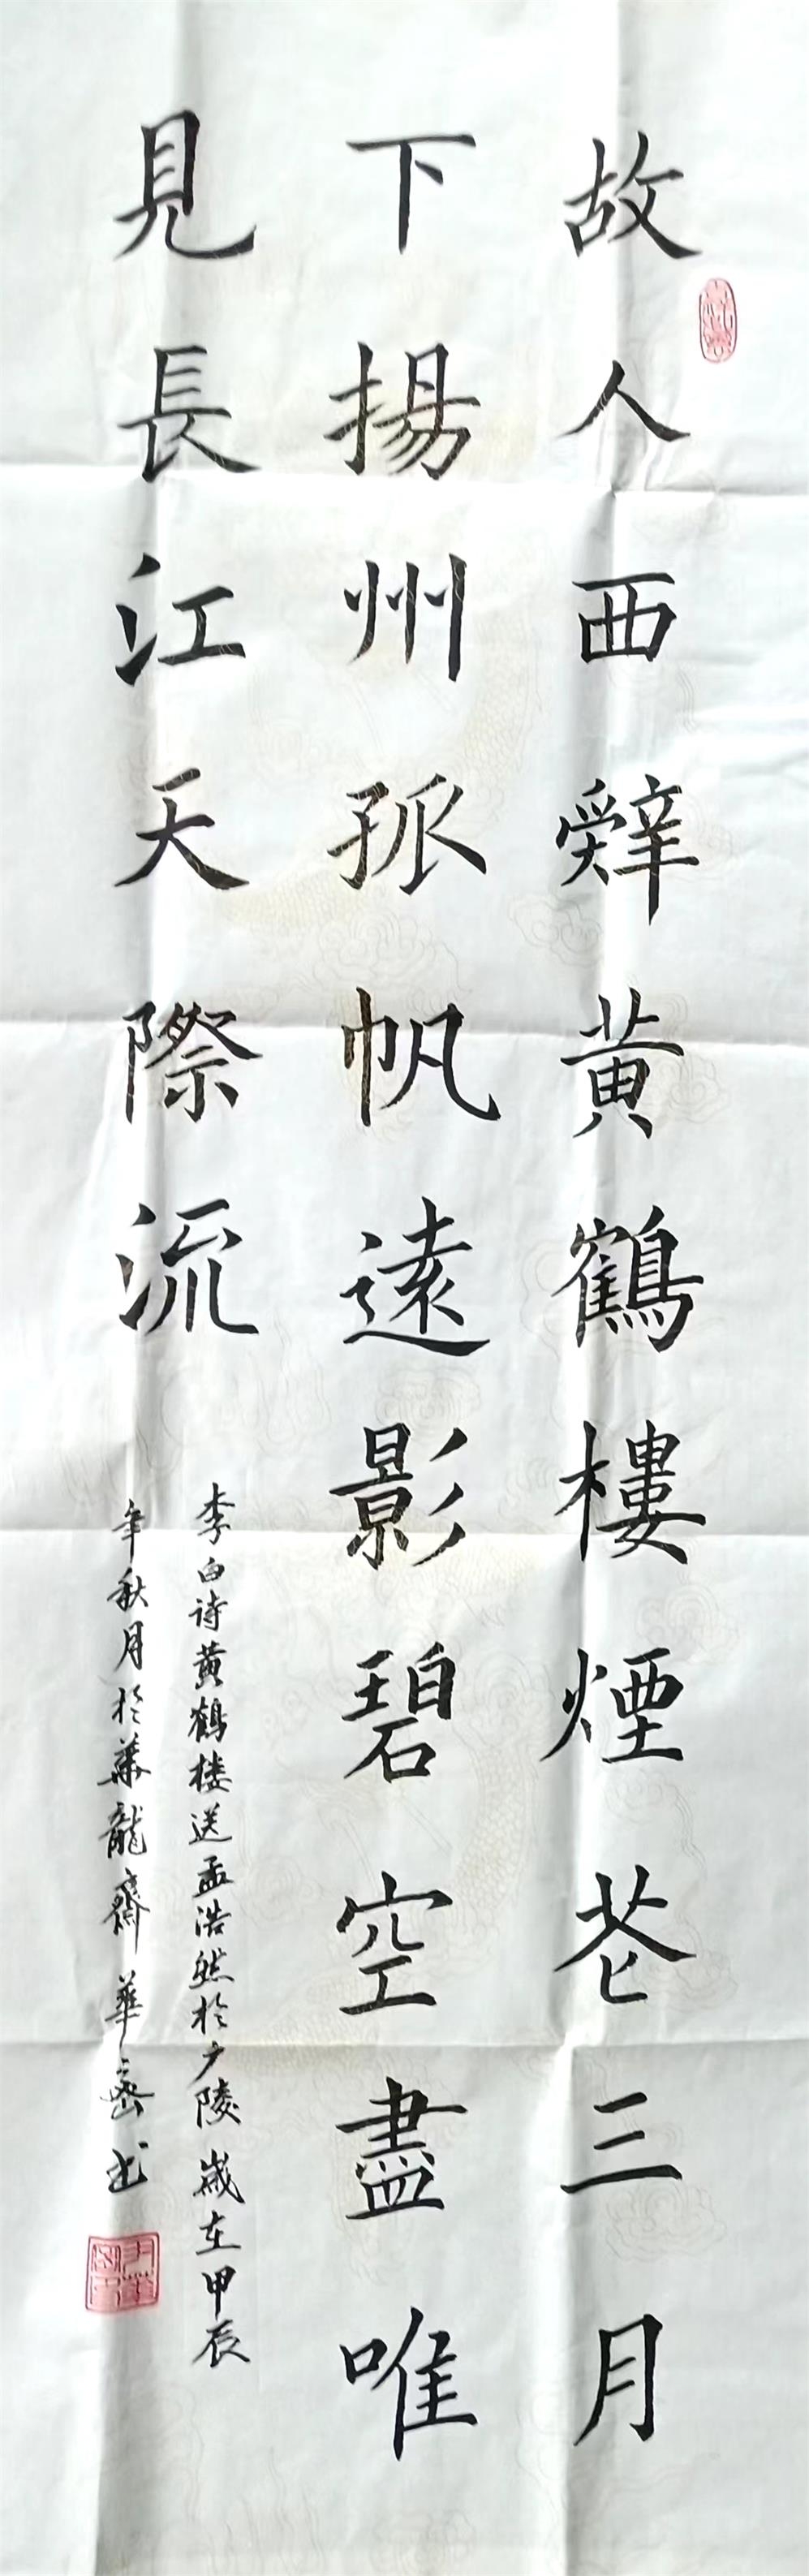 故人西辤黄鶴樓煙花三月
下揚州孤帆遠影碧空盡唯
見長江天際流
李白诗黄鹤楼送孟浩然於广陵歲在甲辰
年秋月於華龍齋華嵒书